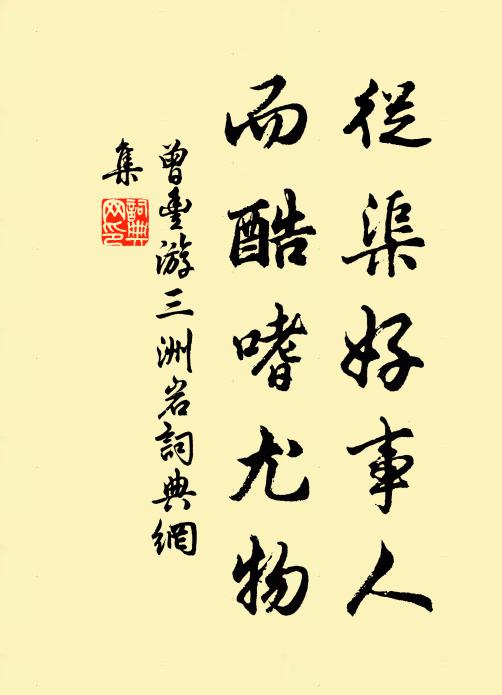 從渠好事人
而酷嗜尤物
曾豊游三洲岩詞典網
集
詞典
网印